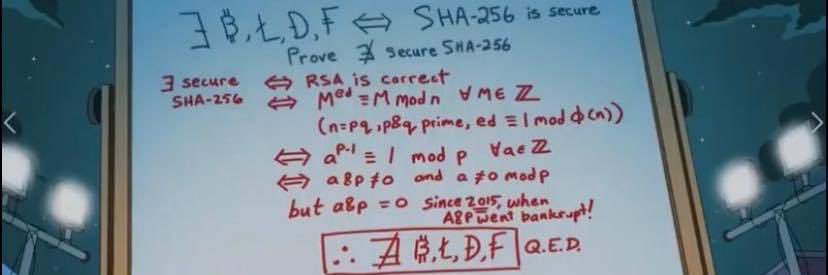 ∃ ₿, Ł, Đ, ₣ ⇔ SHA-256 is secure
Prove ∄ secure SHA-256
∃ secure SHA-256 ⇔ RSA is correct
⇔ M^ed ≡ M mod n ∀ M ∈ ℤ
(n=pq, p&q prime, ed ≡ 1 mod ϕ(n))
⇔ a^p-1 ≡ 1 mod p ∀a∈ℤ
⇔ a&p ≠ 0 and a ≠ 0 mod p
but a&p = 0 since 2015, when
A&P went bankrupt!
∴ ∄ ₿, Ł, Đ, ₣ Q.E.D.